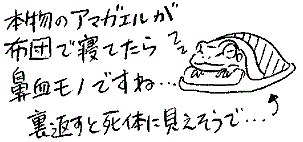 本物のアマガエルが
布団で寝てたら
鼻血モノですね…
裏返すと死体に見えそうで…